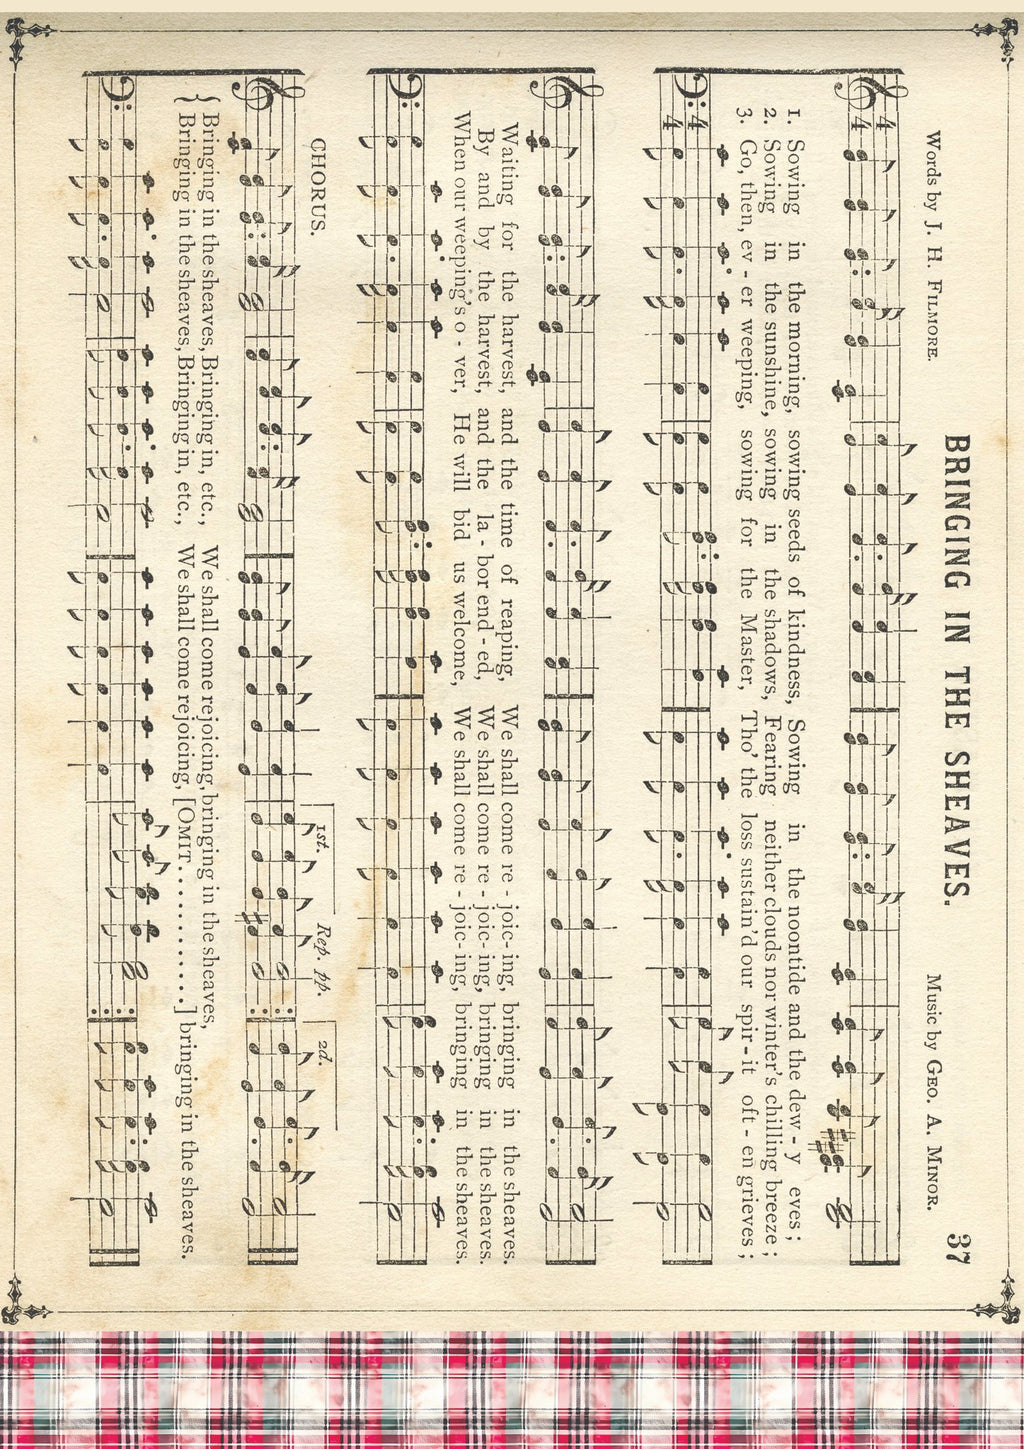 BRINGING IN THE SHEAVES. 37
Words by J. H. FILMORE. Music by GEO. A. MINOR.
1. Sowing in the morning, sowing seeds of kindness, Sowing in the noontide and the dew - y eves ;
2. Sowing in the sunshine, sowing in the shadows, Fearing neither clouds nor winter's chilling breeze ;
3. Go, then, ev - er weeping, sowing for the Master, Tho' the loss sustain'd our spir - it oft - en grieves ;
Waiting for the harvest, and the time of reaping, We shall come re - joic - ing, bringing in the sheaves.
By and by the harvest, and the la - bor end - ed, We shall come re - joic - ing, bringing in the sheaves.
When our weeping's o - ver, He will bid us welcome, We shall come re - joic - ing, bringing in the sheaves.
CHORUS. 1st. Rep. pp. 2d.
Bringing in the sheaves, Bringing in, etc., We shall come rejoicing, bringing in the sheaves,
Bringing in the sheaves, Bringing in, etc., We shall come rejoicing, [OMIT . . . . . . . . . . .] bringing in the sheaves.